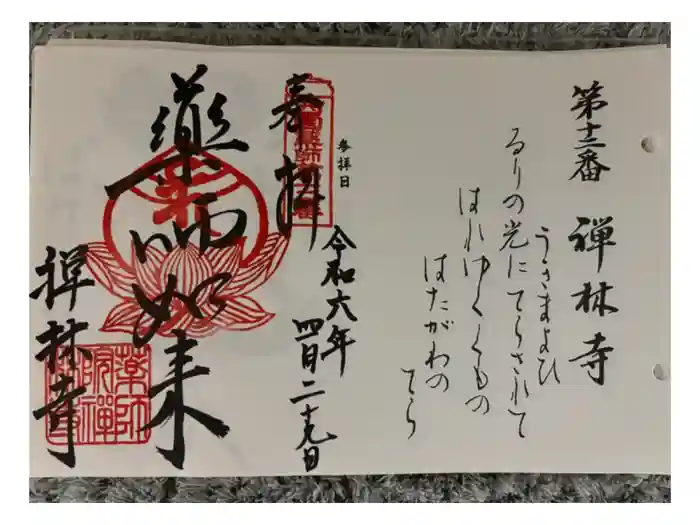 第十二番 禅林寺
るりの光にてらされて
うきまよひ
はれゆくくもの
はたがわの
てら
参拝日
令和六年
四月二十九日
奉拝
薬師如来
禅林寺